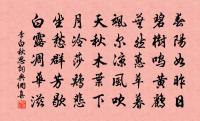 春陽如昨日
碧樹鳴黃鸝
蕪然蕙草暮
颯尔涼風吹
天秋木葉下
月冷莎雞悲
坐愁群芳歇
白露凋華滋
李白秋思詞典網